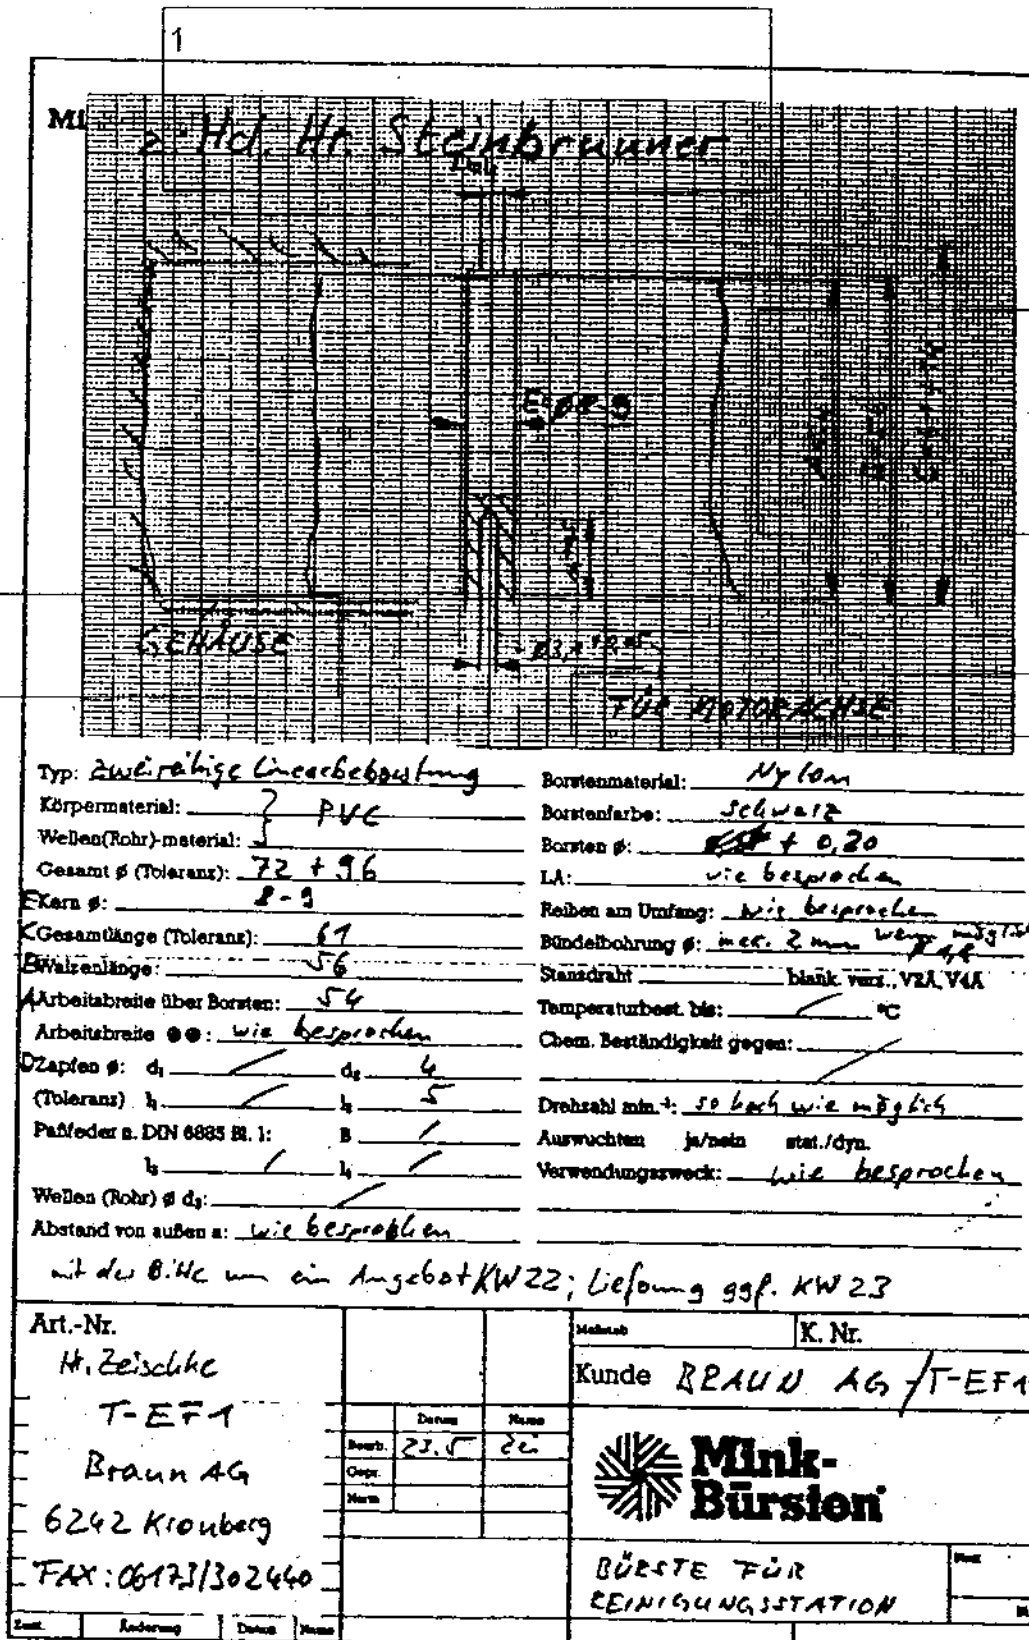 1
z. Hd. Hr. Steinbrunner
GEHÄUSE
FÜR MOTORACHSE
Typ: zweireihige Linearbeborstung
Körpermaterial: } PVC
Wellen(Rohr)-material:
Gesamt ø (Toleranz): 72 + 96
E Kern ø: 8-9
C Gesamtlänge (Toleranz): 61
B Walzenlänge: 56
A Arbeitsbreite über Borsten: 54
Arbeitsbreite ●●: wie besprochen
D Zapfen ø: d₁ / d₂ 4
(Toleranz) l₁ / l₂ 5
Paßfeder n. DIN 6885 Bl. 1: B /
l₃ / l₄ /
Wellen (Rohr) ø d₃: /
Abstand von außen a: wie besprochen
Borstenmaterial: Nylon
Borstenfarbe: schwarz
Borsten ø: + 0,20
LA: wie besprochen
Reihen am Umfang: wie besprochen
Bündelbohrung ø: max. 2 mm wenn möglich
Stanzdraht blank. verz., V2A, V4A
Temperaturbest. bis: / °C
Chem. Beständigkeit gegen: /
Drehzahl min.⁻¹: so hoch wie möglich
Auswuchten ja/nein stat./dyn.
Verwendungszweck: wie besprochen
mit der Bitte um ein Angebot KW 22; Lieferung ggf. KW 23
Art.-Nr.
H. Zeischke
T-EF1
Braun AG
6242 Kronberg
FAX: 06173/302440
Zust. Änderung Datum Name
Datum Name
Bearb. 23.5 Zei
Gepr.
Norm
Maßstab K. Nr.
Kunde BRAUN AG /T-EF1
Mink-
Bürsten
BÜRSTE FÜR
REINIGUNGSSTATION